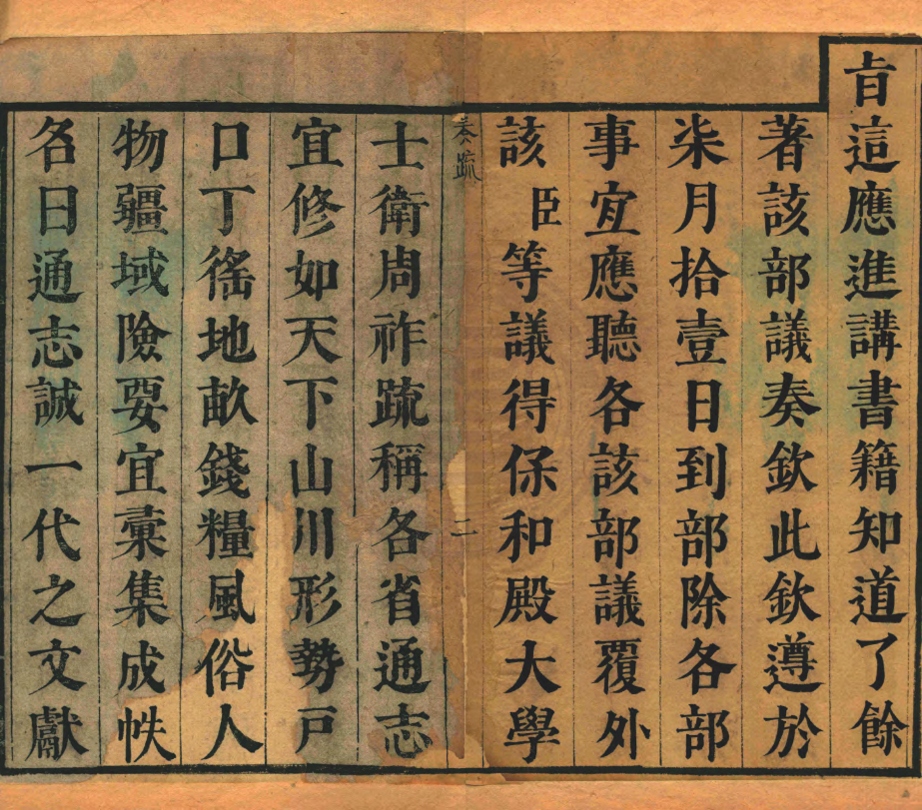 旨這應進講書籍知道了餘
著該部議奏欽此欽遵於
柒月拾壹日到部除各部
事宜應聽各該部議覆外
該臣等議得保和殿大學
奏疏
二
士衛周祚疏稱各省通志
宜修如天下山川形勢戶
口丁徭地畝錢糧風俗人
物疆域險要宜彙集成帙
名曰通志誠一代之文獻